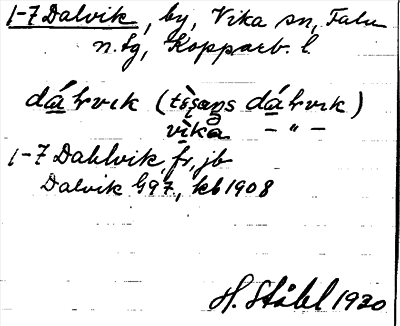 1-7 Dalvik, by, Vika sn, Falu
n. tg, Kopparb. l.
dáḷvɩk (tɩ̀sans dáḷvɩk)
vɩ̀ka – " –
1-7 Dahlvik, fr, jb
Dalvik G97, kb 1908
H. Ståhl 1930